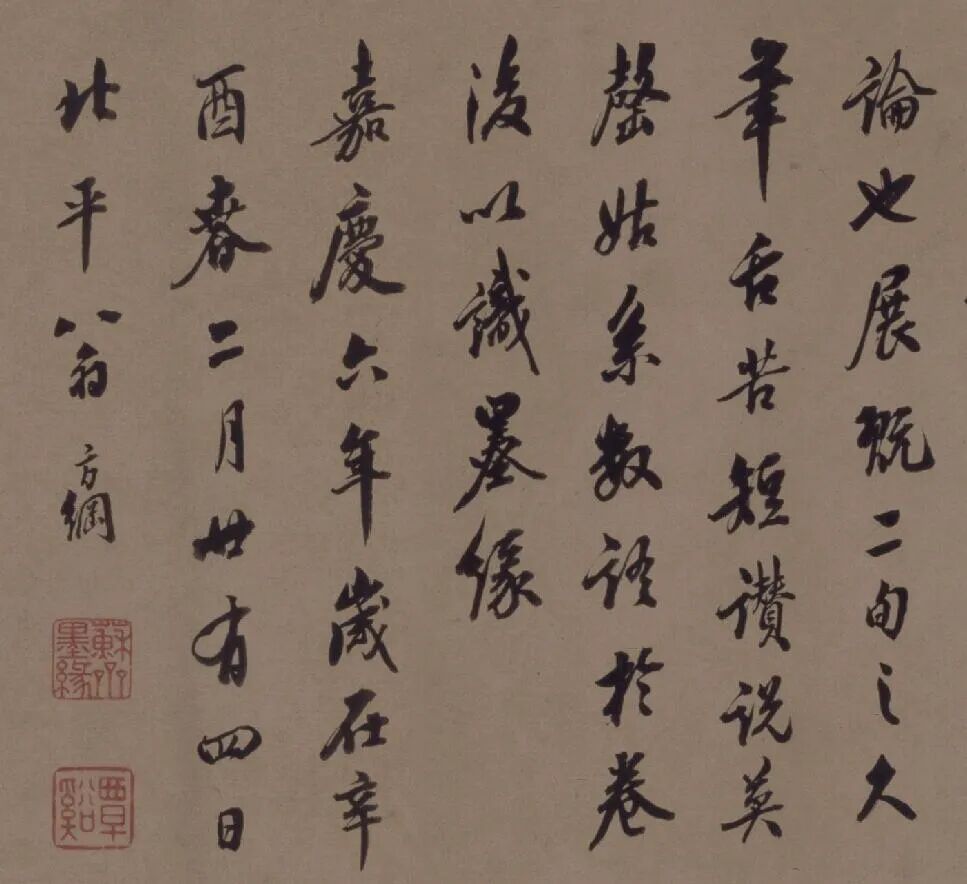 論也展翫二旬之久
筆舌苦短讚説莫
罄姑系數語於卷
後以識墨緣
嘉慶六年歲在辛
酉春二月廿有四日
北平翁方綱
蘇齋墨緣
覃谿